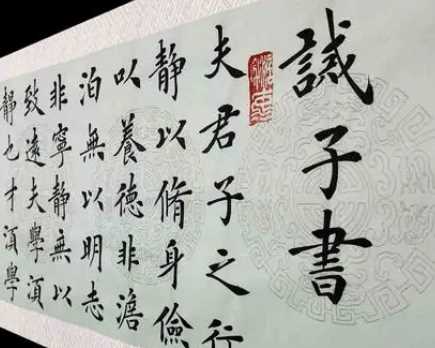 誡子書
夫君子之行
靜以脩身儉
以養德非澹
泊無以明志
非寧靜無以
致遠夫學須
靜也才須學